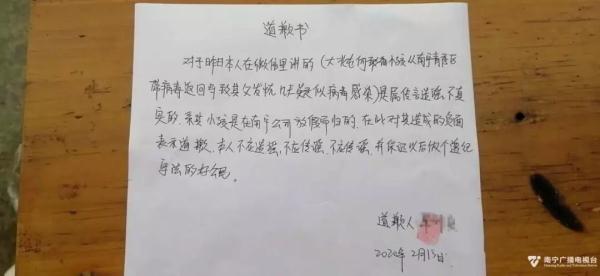 道歉书
对于昨日本人在微信里讲的(大
带病毒返回 致其父发烧 几天疑似病毒感染)是属传言造谣,不真
实的。 小孩是在南宁公司放假带归的。在此对其造成的负面
表示道歉。本人不应造谣,不应传谣,不应信谣。并保证以后做个遵纪
守法的好公民。
道歉人
2020年2月13日
南宁广播电视台